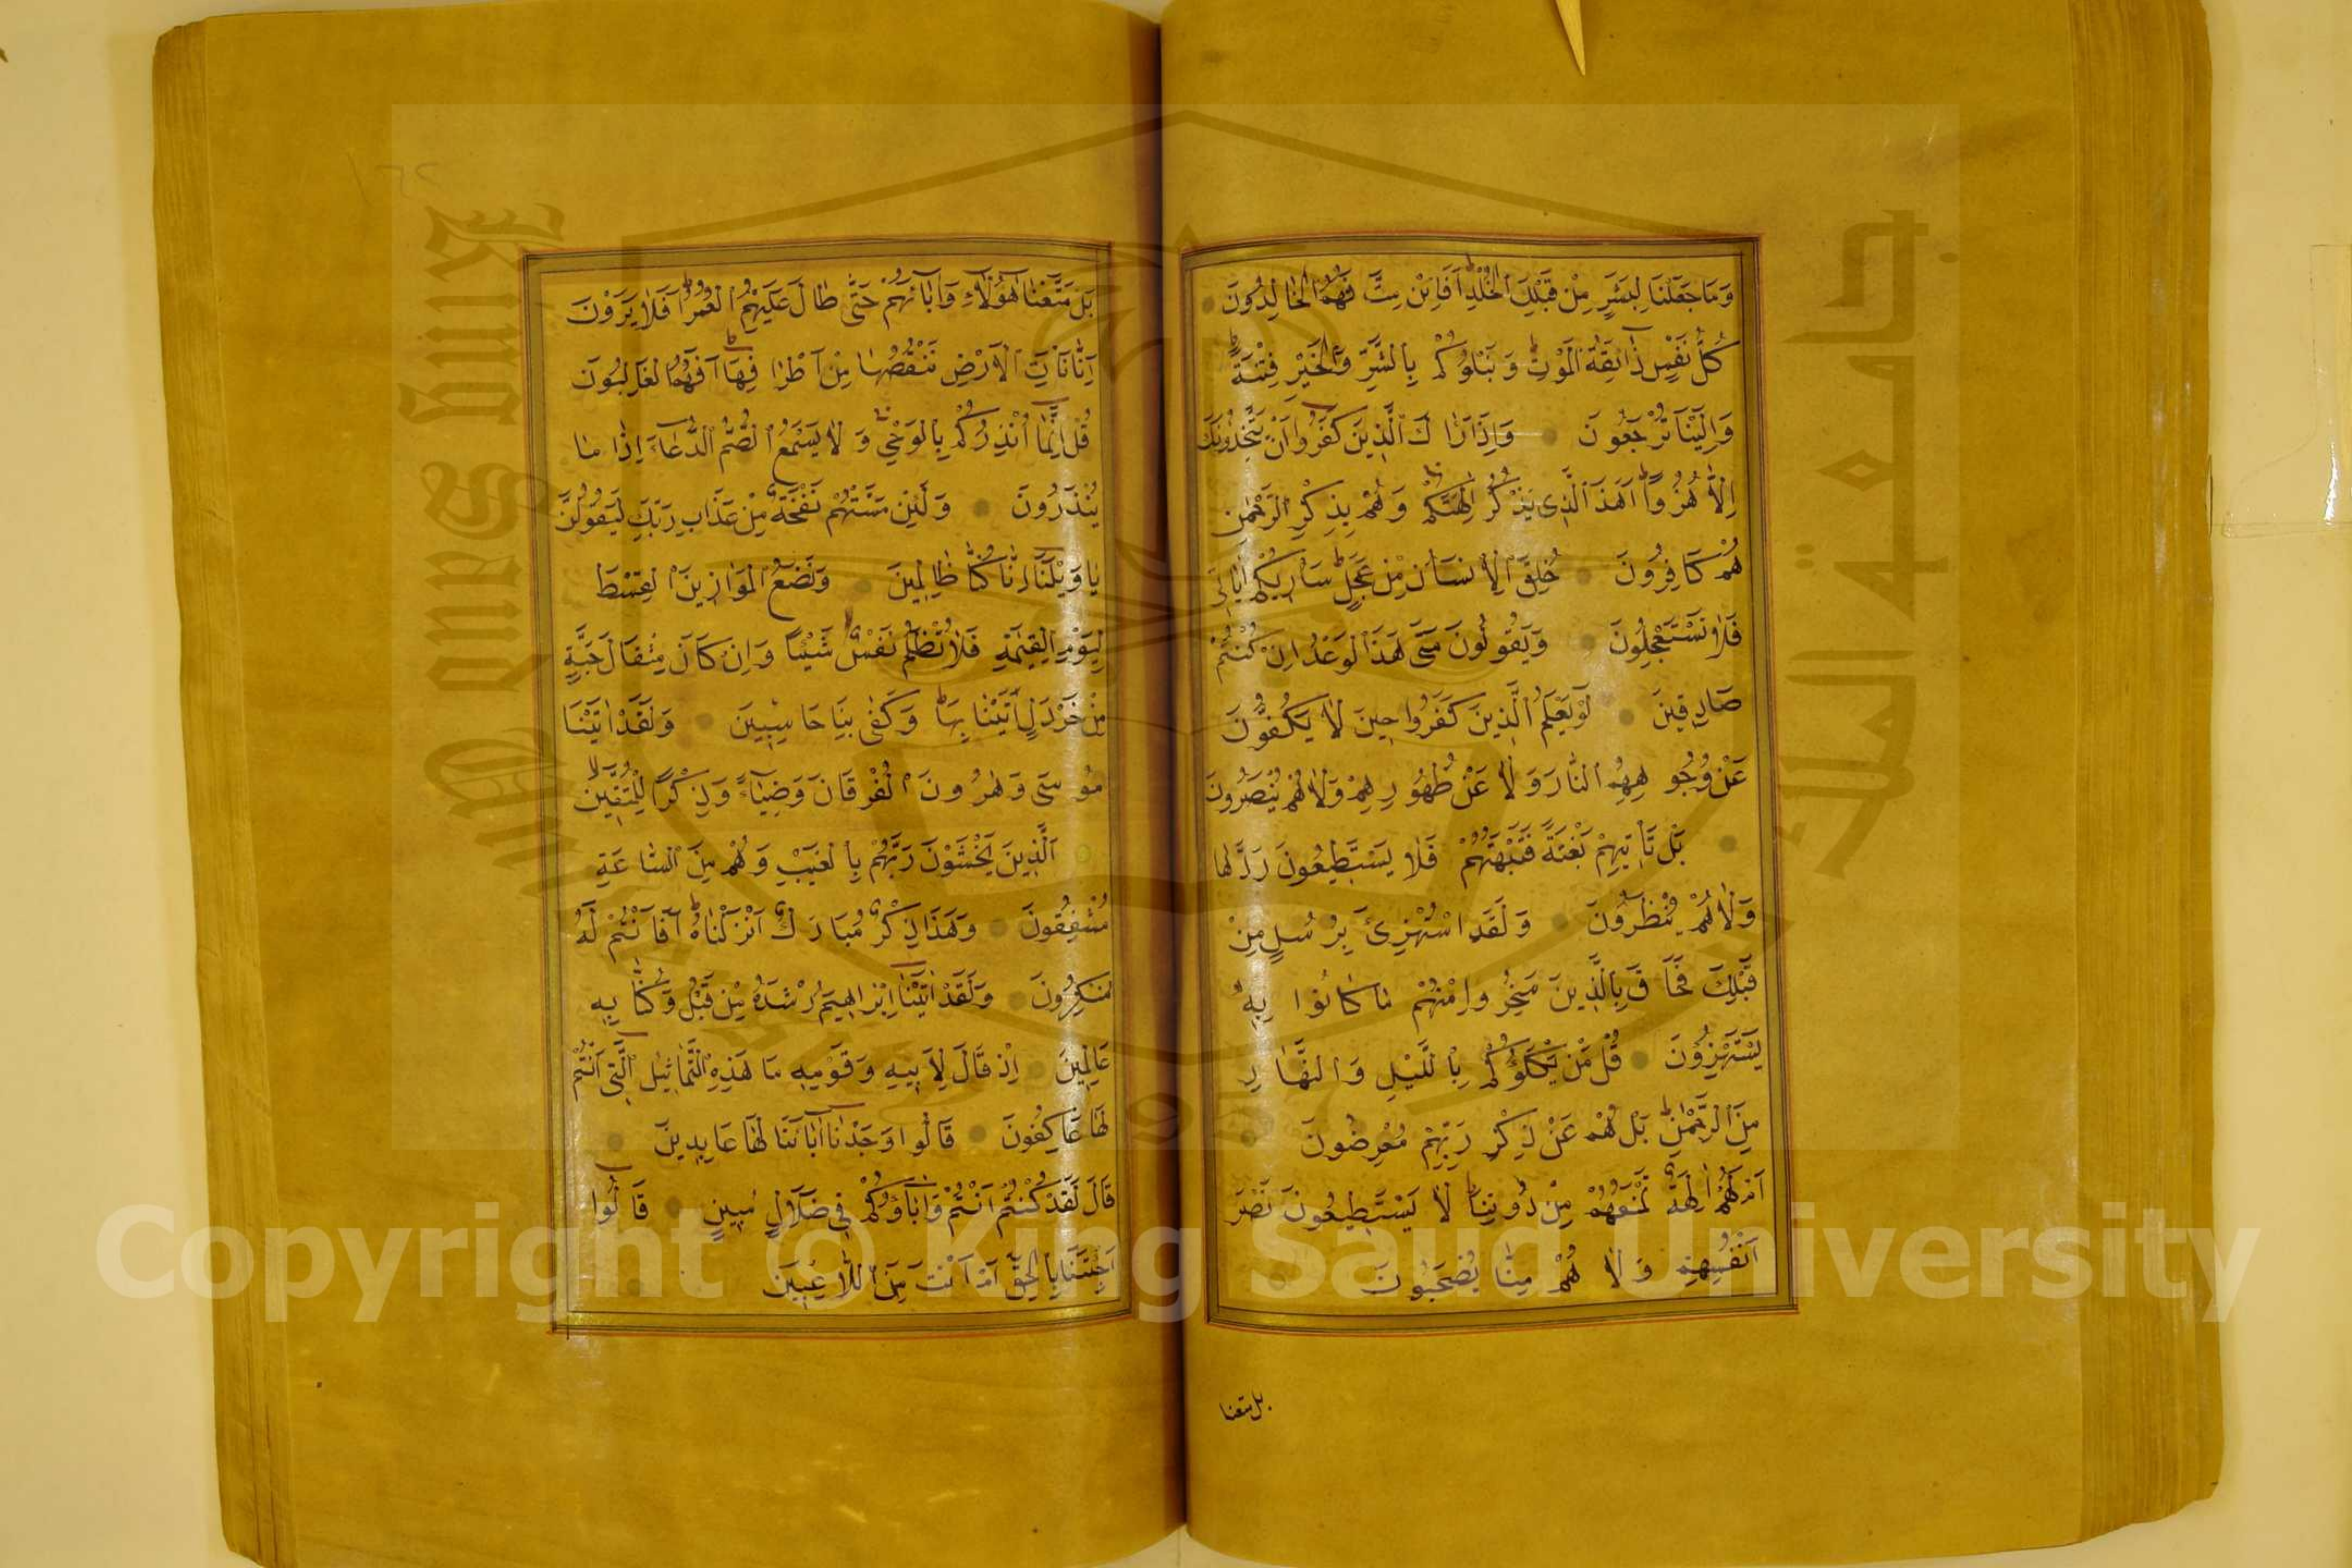 وَمَا جَعَلْنَا لِبَشَرٍ مِنْ قَبْلِكَ الْخُلْدَ اَفَاِئنْ مِتَّ فَهُمُ الْخَالِدُونَ
كُلُّ نَفْسٍ ذَائِقَةُ الْمَوْتِ وَنَبْلُوكُمْ بِالشَّرِّ وَالْخَيْرِ فِتْنَةً
وَاِلَيْنَا تُرْجَعُونَ وَاِذَا رَاٰكَ الَّذِينَ كَفَرُوا اَنْ يَتَّخِذُونَكَ
اِلَّا هُزُوًا اَهَذَا الَّذِى يَذْكُرُ اٰلِهَتَكُمْ وَهُمْ بِذِكْرِ الرَّحْمٰنِ
هُمْ كَافِرُونَ خُلِقَ الْاِنْسَانُ مِنْ عَجَلٍ سَاُرِيكُمْ اٰيَاتِى
فَلَا تَسْتَعْجِلُونَ وَيَقُولُونَ مَتَى هَذَا الْوَعْدُ اِنْ كُنْتُمْ
صَادِقِينَ لَوْ يَعْلَمُ الَّذِينَ كَفَرُوا حِينَ لَا يَكُفُّونَ
عَنْ وُجُوهِهِمُ النَّارَ وَلَا عَنْ ظُهُورِهِمْ وَلَا هُمْ يُنْصَرُونَ
بَلْ تَأْتِيهِمْ بَغْتَةً فَتَبْهَتُهُمْ فَلَا يَسْتَطِيعُونَ رَدَّهَا
وَلَا هُمْ يُنْظَرُونَ وَلَقَدِ اسْتُهْزِئَ بِرُسُلٍ مِنْ
قَبْلِكَ فَحَاقَ بِالَّذِينَ سَخِرُوا مِنْهُمْ مَا كَانُوا بِهِ
يَسْتَهْزِؤُنَ قُلْ مَنْ يَكْلَؤُكُمْ بِالَّيْلِ وَالنَّهَارِ
مِنَ الرَّحْمٰنِ بَلْ هُمْ عَنْ ذِكْرِ رَبِّهِمْ مُعْرِضُونَ
اَمْ لَهُمْ اٰلِهَةٌ تَمْنَعُهُمْ مِنْ دُونِنَا لَا يَسْتَطِيعُونَ نَصْرَ
اَنْفُسِهِمْ وَلَا هُمْ مِنَّا يُصْحَبُونَ
بل متعنا
بَلْ مَتَّعْنَا هٰؤُلَاءِ وَاٰبَاءَهُمْ حَتَّى طَالَ عَلَيْهِمُ الْعُمُرُ اَفَلَا يَرَوْنَ
اَنَّا نَأْتِى الْاَرْضَ نَنْقُصُهَا مِنْ اَطْرَافِهَا اَفَهُمُ الْغَالِبُونَ
قُلْ اِنَّمَا اُنْذِرُكُمْ بِالْوَحْىِ وَلَا يَسْمَعُ الصُّمُّ الدُّعَاءَ اِذَا مَا
يُنْذَرُونَ وَلَئِنْ مَسَّتْهُمْ نَفْحَةٌ مِنْ عَذَابِ رَبِّكَ لَيَقُولُنَّ
يَا وَيْلَنَا اِنَّا كُنَّا ظَالِمِينَ وَنَضَعُ الْمَوَازِينَ الْقِسْطَ
لِيَوْمِ الْقِيٰمَةِ فَلَا تُظْلَمُ نَفْسٌ شَيْئًا وَاِنْ كَانَ مِثْقَالَ حَبَّةٍ
مِنْ خَرْدَلٍ اَتَيْنَا بِهَا وَكَفٰى بِنَا حَاسِبِينَ وَلَقَدْ اٰتَيْنَا
مُوسَى وَهٰرُونَ الْفُرْقَانَ وَضِيَاءً وَذِكْرًا لِلْمُتَّقِينَ
الَّذِينَ يَخْشَوْنَ رَبَّهُمْ بِالْغَيْبِ وَهُمْ مِنَ السَّاعَةِ
مُشْفِقُونَ وَهَذَا ذِكْرٌ مُبَارَكٌ اَنْزَلْنَاهُ اَفَاَنْتُمْ لَهُ
مُنْكِرُونَ وَلَقَدْ اٰتَيْنَا اِبْرَاهِيمَ رُشْدَهُ مِنْ قَبْلُ وَكُنَّا بِهِ
عَالِمِينَ اِذْ قَالَ لِاَبِيهِ وَقَوْمِهِ مَا هَذِهِ التَّمَاثِيلُ الَّتِى اَنْتُمْ
لَهَا عَاكِفُونَ قَالُوا وَجَدْنَا اٰبَاءَنَا لَهَا عَابِدِينَ
قَالَ لَقَدْ كُنْتُمْ اَنْتُمْ وَاٰبَاؤُكُمْ فِى ضَلَالٍ مُبِينٍ قَالُوا
اَجِئْتَنَا بِالْحَقِّ اَمْ اَنْتَ مِنَ اللَّاعِبِينَ
Copyright © King Saud University
King Saud University
جامعة الملك سعود
1957